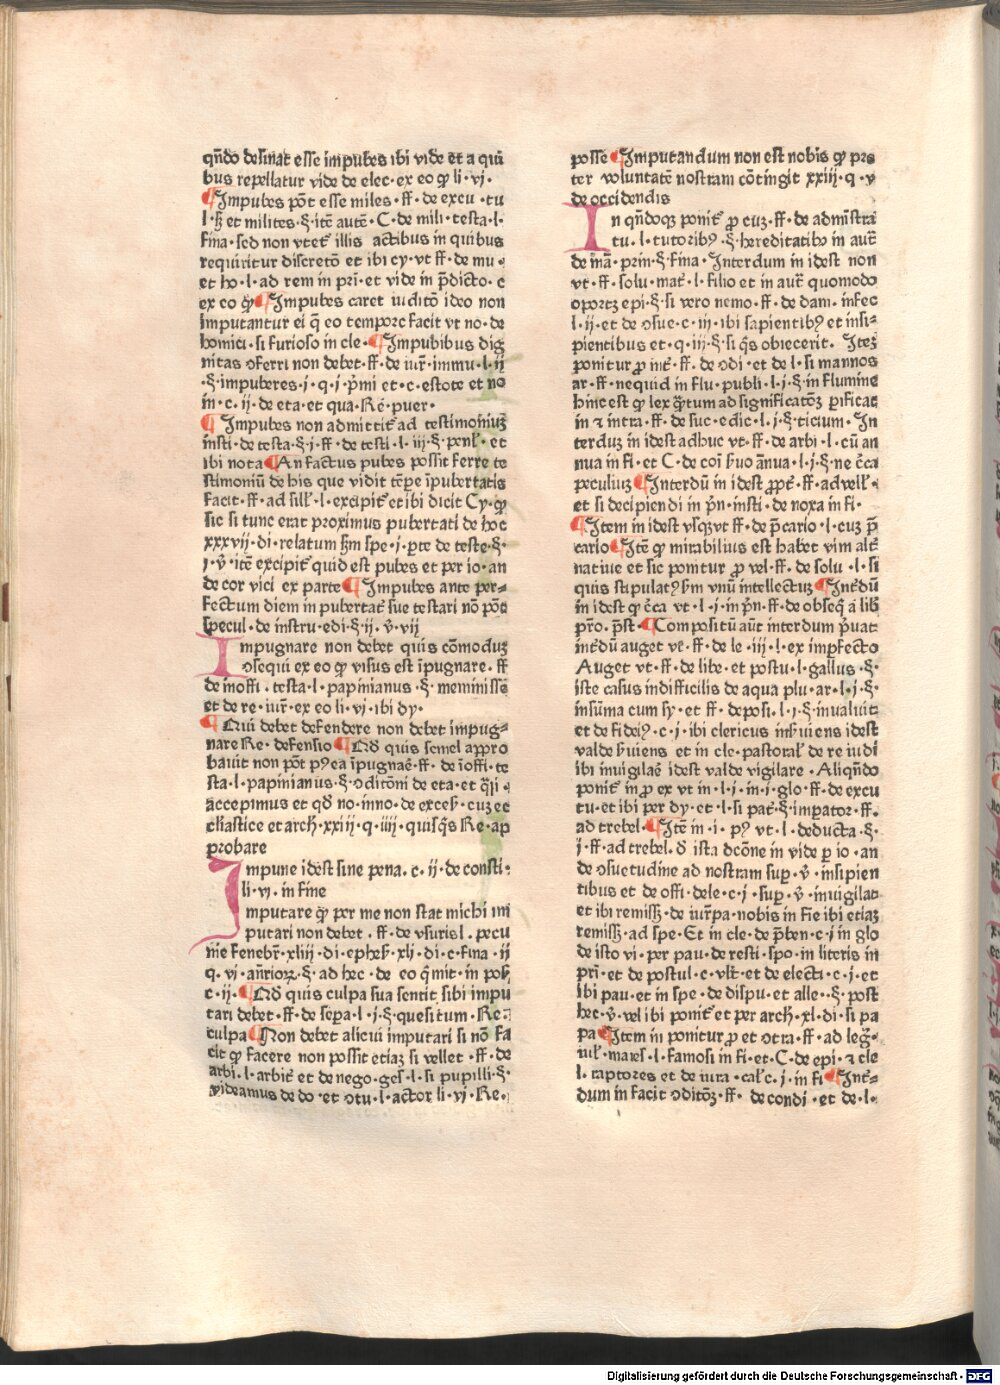 qñdo desinat esse impubes ibi vide et a quis
bus repellatur vide de elec· ex eo qꝫ li· vj·
¶Impubes põt esse miles· ff· de excu· tu
l·ꝫ §· et milites·§·itẽ autẽ· C· de mili· testa·l·
fina·sed non vtet᷑ illis actibus in quibus
requiritur discretõ et ibi cy·vt ff· de mu·
et ho·l· ad rem in pri· et vide in p̃dicto· c
ex eo qꝫ ¶Impubes caret iuditõ ideo non
imputantur ei q̃ eo tempore facit vt no·de
homici·si furioso in cle· ¶Impubibus dig
nitas ɔferri non debet·ff· de iur᷑·immu·l·ij
·§·impuberes·j·q·j·p̃mi et·c·estote et no
in·c·ij·de eta·et qua·Re᷑·puer·
¶ Impubes non admittit᷑ ad testimoniuꝫ
insti·de testa·§·j·ff·de testi·l·iij·§·penl᷑·et
ibi nota ¶An factus pubes possit ferre te
stimoniũ de his que vidit tẽpe ĩpubertatis
facit·ff·ad sill᷑·l·excipit᷑ et ibi dicit Cy·qꝫ
sic si tunc erat proximus pubertati de hoc
xxxvij·di·relatum s̃m spe·j·pte de teste·§·
j·ṽ·itẽ excipit᷑ quid est pubes et per io·an
de cor vici ex parte ¶ Impubes ante per-
fectum diem in pubertat᷑ sue testari nõ põt
specul·de instru·edi·§·ij·ṽ·vij
Impugnare non debet quis cõmoduꝫ
ɔsequi ex eo qꝫ visus est ĩpugnare· ff
de inoffi·testa·l·papinianus·§·meminissẽ
et de re·iur᷑·ex eo li·vj·ibi dy·
¶ Qui debet defendere non debet impug-
nare Re·defensio ¶Qđ quis semel appro
bauit non põt pꝰea ĩpugnaẽ·ff·de ĩoffi·te
sta·l·papinianus·§·ɔditõni de eta·et q̃li·
accepimus et qđ no·inno·de exceſſ·cuꝫ ec
cliastice et arch·xxiij·q·iiij·quisq̃s Re·ap
probare
Impune idest sine pena·c·ij·de consti·
li·vj·in fine
mputare qꝫ per me non stat michi im
putari non debet·ff·de vsuris l·pecu
nie fenebr᷑·xliij·di·ephes᷑·xli·di·c·fina·ij
q·vj·añrioꝝ·§·ad hec·de eo q̃ mit·in poſſ
c·ij· ¶Qđ quis culpa sua sentit sibi impu
tari debet·ff·de sep̃a·l·j·§·quesitum·Re·
culpa ¶Non debet alicui imputari si nõ fa
cit qꝫ facere non possit etiaꝫ si vellet·ff·de
arbi·l·arbit᷑ et de nego·ges᷑·l·si pupilli·§·
videamus de do·et ɔtu·l·actor li·vj·Re·
posse ¶Imputandum non est nobis qꝫ pre
ter voluntatẽ nostram cõtingit xxiij·q·v
de occidendis
In qñdoqꝫ ponit᷑ ꝓ cuꝫ·ff·de admĩstra
tu·l·tutoribꝰ·§·hereditatibꝰ in aut᷑
de iñã·prin·§·fina·Interdum in idest non
vt·ff·solu·mat᷑·l·filio et in aut᷑ quomodo
oportꝫ epi·§·si vero nemo·ff·de dam·infec
l·ij·et de ɔsue·c·iij·ibi sapientibꝰ et insi-
pientibus et·q·iij·§·si q̃s obiecerit· Iteꝫ
ponitur ꝓ int᷑·ff·de ɔdi·et de·l·si mannos
ar·ff·nequid in flu·publi·l·j·§·in flumine
hinc est qꝫ lex q̃tum ad significatõꝫ ꝑificat
in ⁊ intra·ff·de suc·edic·l·j·§·ticium·In
terduꝫ in idest adhuc vt·ff·de arbi·l·cũ an
nua in fi·et C·de coĩ s̃uo ãnua·l·j·§·ne c̃ca
peculiuꝫ ¶Interdũ in idest ꝓpt᷑·ff·ad vell᷑·
et si decipiendi in p̃n·insti·de noxa in fi·
¶Item in idest vsqꝫ vt ff·de p̃cario·l·cuꝫ p̃
cario ¶Itẽ qꝫ mirabilius est habet vim alt᷑
natiue et sic ponitur ꝓ vel·ff·de solu·l·si
quis stipulatꝰ s̃m vnũ intellectuꝫ ¶Int᷑dũ
in idest qꝫ c̃ca vt·l·j·in p̃n·ff·de obseq̃ a lib
p̃ro·p̃st· ¶Compositũ aũt interdum p̃uat
int᷑dũ auget ve᷑·ff·de le·iij·l·ex impfecto
Auget vt·ff·de libe·et postu·l·gallus·§·
iste casus indifficilis de aqua plu·ar·l·j·§·
insũma cum sy·et ff·deposi·l·j·§·inualuit
et de fideiꝰ·c·j·ibi clericus ins̃uiens idest
valde s̃uiens et in cle·pastoral᷑ de re iudi
ibi inuigilaẽ idest valde vigilare·Aliqñdo
ponit᷑ in ꝓ ex vt in·l·j·in·j·glo·ff·de excu
tu·et ibi per dy·et·l·si pat᷑·§·impator·ff·
ad trebel· ¶Itẽ in·j·pꝰ vt·l·deducta·§·
j·ff·ad trebel·đ ista dcõne in vide ꝑ io·an
de ɔsuetudine ad nostram sup·ṽ·insipien
tibus et de offi·dele·c·j·sup·ṽ·inuigilat
et ibi remissꝫ·de iur᷑pa·nobis in fie ibi etiaꝫ
remissꝫ·ad spe·Et in cle·de p̃ben·c·j·in glo
de isto vi·per pau·de resti·spo·in literis in
pri᷑·et de postul·c·vlt᷑·et de electi·c·j·et
ibi pau·et in spe·de dispu·et alle·§·post
hec·ṽ·vel ibi ponit᷑ et per arch·xl·di·si pa
pa ¶Item in ponitur ꝓ et ɔtra·ff·ad leg᷑·
iul᷑·maies·l·famosi in fi·et·C·de epi·⁊ cle
l·raptores et de iura·cal᷑·c·j·in fi ¶Int᷑-
dum in facit ɔditõꝫ·ff·de condi·et de·l·
Digitalisierung gefördert durch die Deutsche Forschungsgemeinschaft - DFG